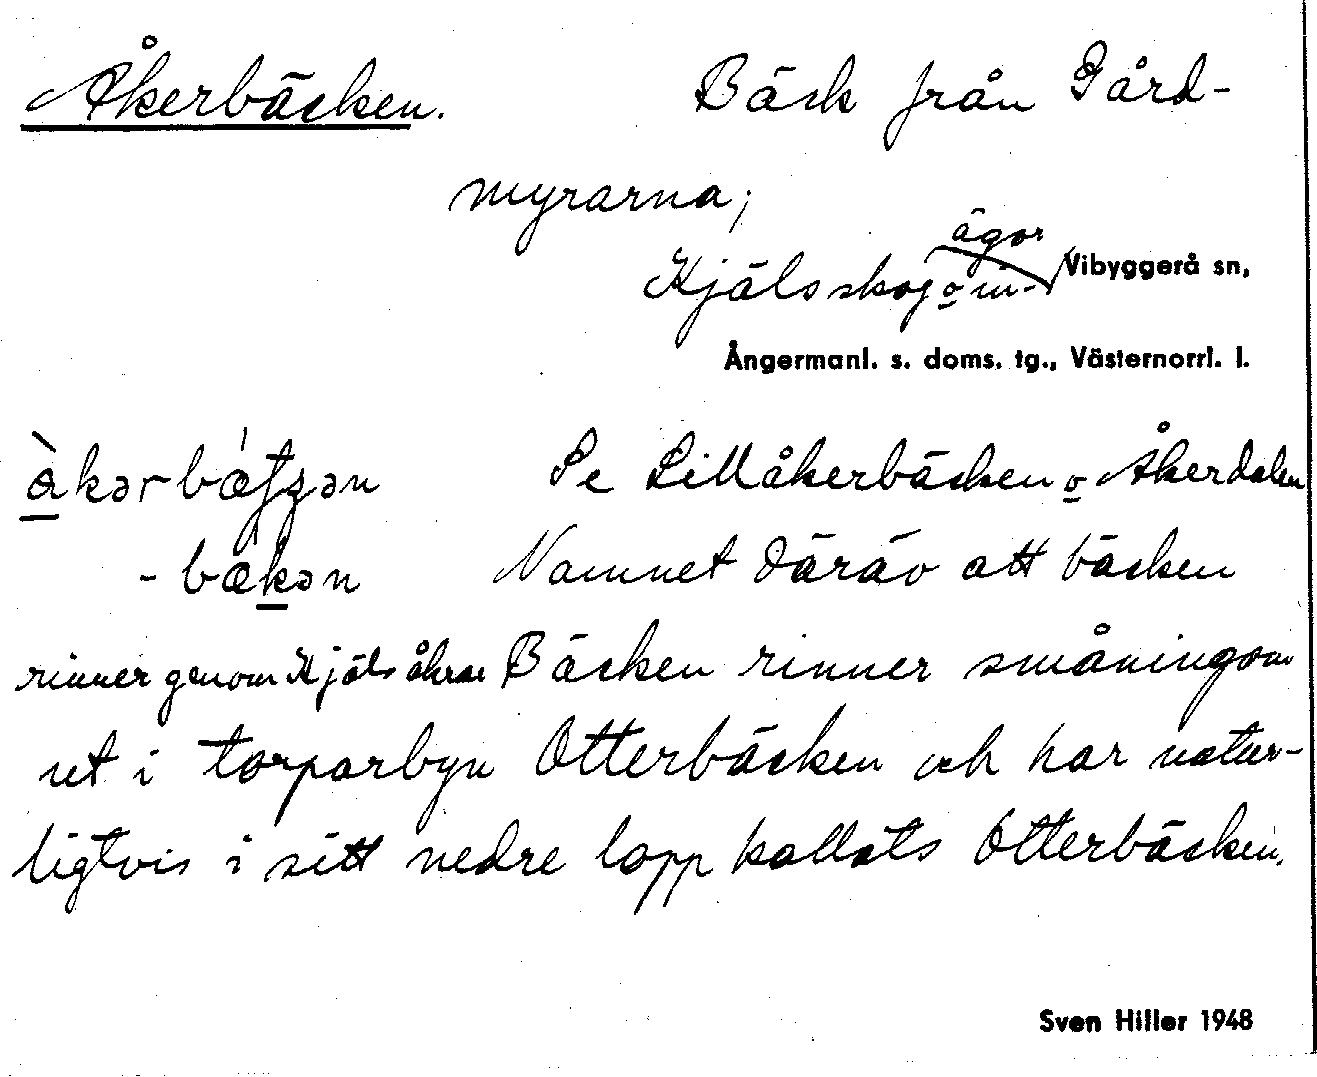 Åkerbäcken. Bäck från Gård-
myrarna;
ägor
Kjäls skog o in- Vibyggerå sn,
Ångermanl. s. doms. tg., Västernorrl. l.
Se Lillåkerbäcken o Åkerdalen
Namnet däráv att bäcken
rinner genom Kjäls åkrar Bäcken rinner småningom
ut i torparbyn Otterbäcken och har natur-
ligtvis i sitt nedre lopp kallats Otterbäcken.
Sven Hiller 1948